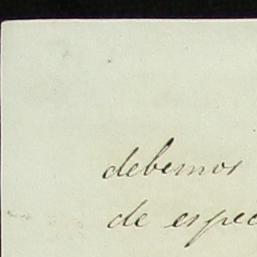 debemos
de espec